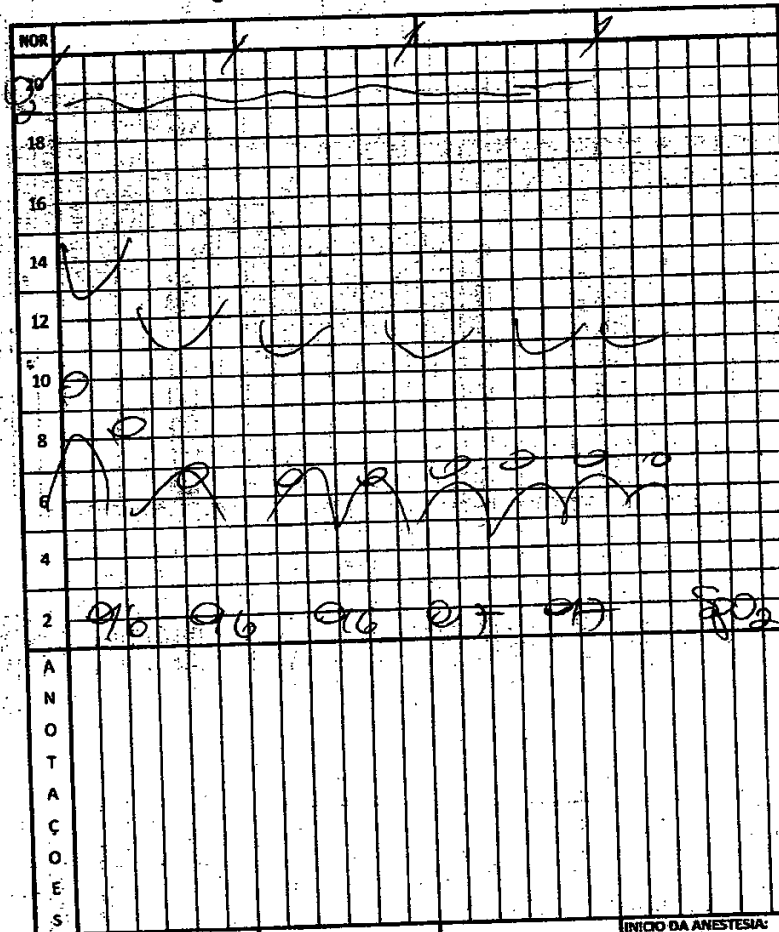 NOR
20
18
16
14
12
10
8
6
4
2 96 96 96 97 97 SpO2
A
N
O
T
A
Ç
O
E
S
INICIO DA ANESTESIA: